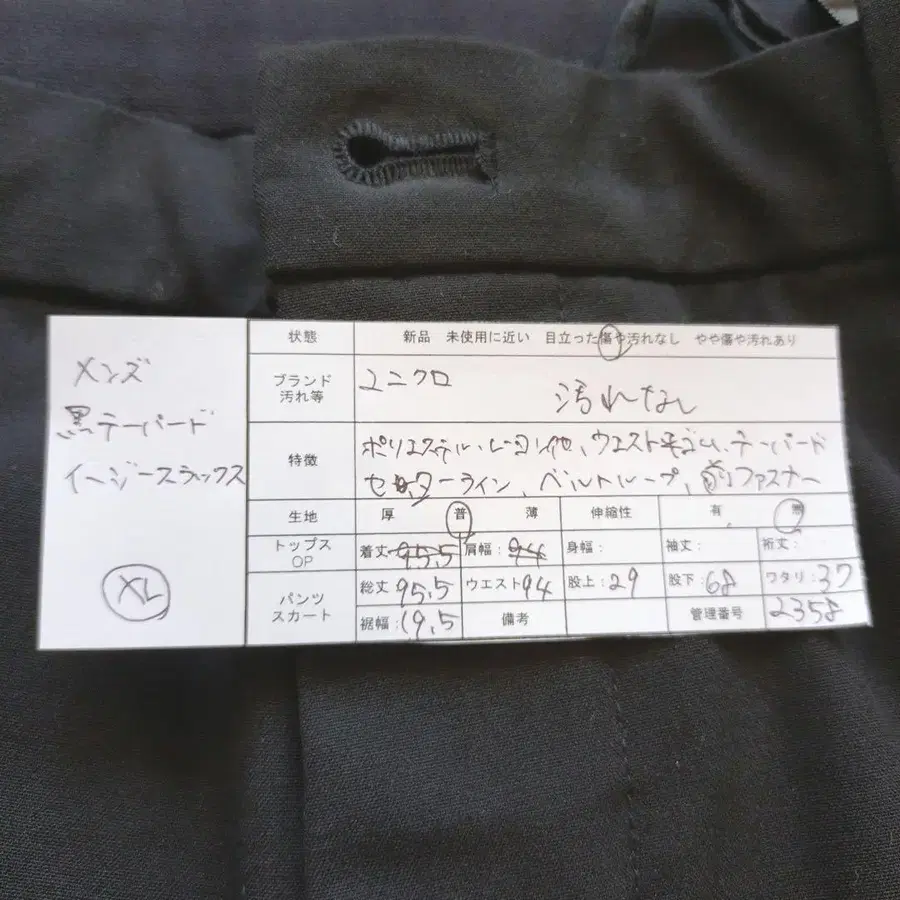 メンズ
黒テーパード
イージースラックス
XL
状態 新品 未使用に近い 目立った傷や汚れなし やや傷や汚れあり
ブランド 汚れ等 ユニクロ 汚れなし
特徴 ポリエステル、レーヨン他、ウエスト平ゴム、テーパード
センターライン、ベルトループ、前ファスナー
生地 厚 普 薄 伸縮性 有 無
トップス OP 着丈 95.5 肩幅: 94 身幅: 袖丈: 裄丈:
パンツ スカート 総丈 95.5 ウエスト 94 股上: 29 股下: 68 ワタリ: 37
裾幅: 19.5 備考 管理番号 2358